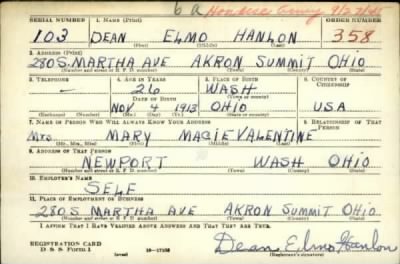 6a
SERIAL NUMBER 1. NAME (Print) ORDER NUMBER
103 DEAN ELMO HANLON 358
(First) (Middle) (Last)
2. ADDRESS (Print)
280 S. MARTHA AVE AKRON SUMMIT OHIO
(Number and street or R. F. D. number) (Town) (County) (State)
3. TELEPHONE 4. AGE IN YEARS 5. PLACE OF BIRTH 6. COUNTRY OF CITIZENSHIP
— 26 WASH
DATE OF BIRTH (Town or county)
NOV 4 1913 OHIO USA
(Mo.) (Day) (Yr.) (State or country)
7. NAME OF PERSON WHO WILL ALWAYS KNOW YOUR ADDRESS 8. RELATIONSHIP OF THAT PERSON
MRS. MARY MACIE VALENTINE
(Mr., Mrs., Miss) (First) (Middle) (Last)
9. ADDRESS OF THAT PERSON
NEWPORT WASH OHIO
(Number and street or R. F. D. number) (Town) (County) (State)
10. EMPLOYER'S NAME
SELF
11. PLACE OF EMPLOYMENT OR BUSINESS
280 S MARTHA AVE AKRON SUMMIT OHIO
(Number and street or R. F. D. number) (Town) (County) (State)
I AFFIRM THAT I HAVE VERIFIED ABOVE ANSWERS AND THAT THEY ARE TRUE.
REGISTRATION CARD
D. S. S. Form 1 (over) Dean Elmo Hanlon
(Registrant's signature)